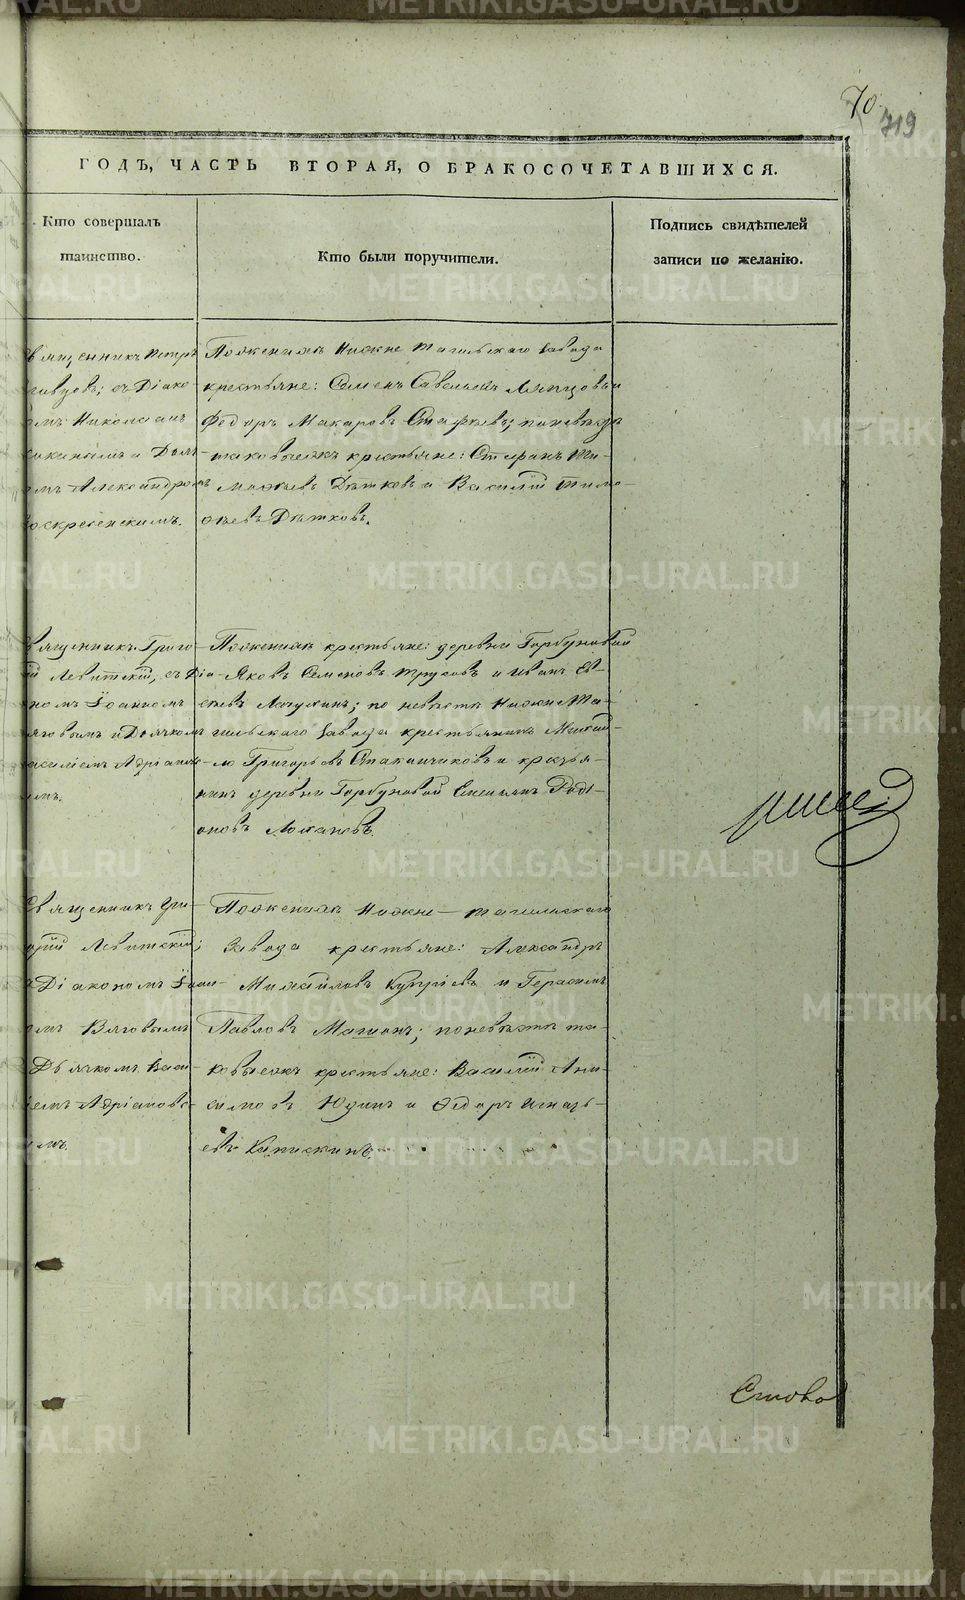 70.
719
ГОДЪ, ЧАСТЬ ВТОРАЯ, О БРАКОСОЧЕТАВШИХСЯ.
Кто совершалъ
таинство.
Кто были поручители.
Подпись свидѣтелей
записи по желанію.
вященникъ Петръ
съ Діако-
омъ Николаемъ
и Дьяч-
омъ Александромъ
оскресенскимъ.
По женихѣ Нижне Тагильскаго завода
крестьяне: Семенъ Савельевъ и
Федоръ Макаровъ по невѣстѣ
таковыежъ крестьяне: Стефанъ Ти-
мофеевъ Дѣтковъ и Василій Тимо-
ѳеевъ Дѣтковъ.
вященникъ Григо-
ій Левитскій, съ Діа-
ономъ Іоанномъ
яговымъ и Дьячкомъ
асиліемъ Адріановс-
имъ.
По женихѣ крестьяне: деревни Горбуновой
Яковъ Семеновъ Трусовъ и Иванъ Ев-
сѣевъ по невѣстѣ Нижне Та-
гильскаго завода крестьянинъ Михай-
ло Григорьевъ Стаканчиковъ и кресья-
нинъ деревни Горбуновой Роді-
оновъ
Священникъ Гри-
орій Левитскій;
Діакономъ Іоан-
омъ Вяговымъ
Дьячкомъ Васи-
іемъ Адріановс-
имъ.
По женихѣ Нижне-Тагильскаго
Завода крестьяне: Александръ
Михайловъ Купріевъ и Герасимъ
Павловъ Машонъ; по невѣстѣ та-
ковыежъ крестьяне: Василій Ани-
симовъ Юдинъ и Ѳедоръ Игнать-
евъ
METRIKI.GASO-URAL.RU